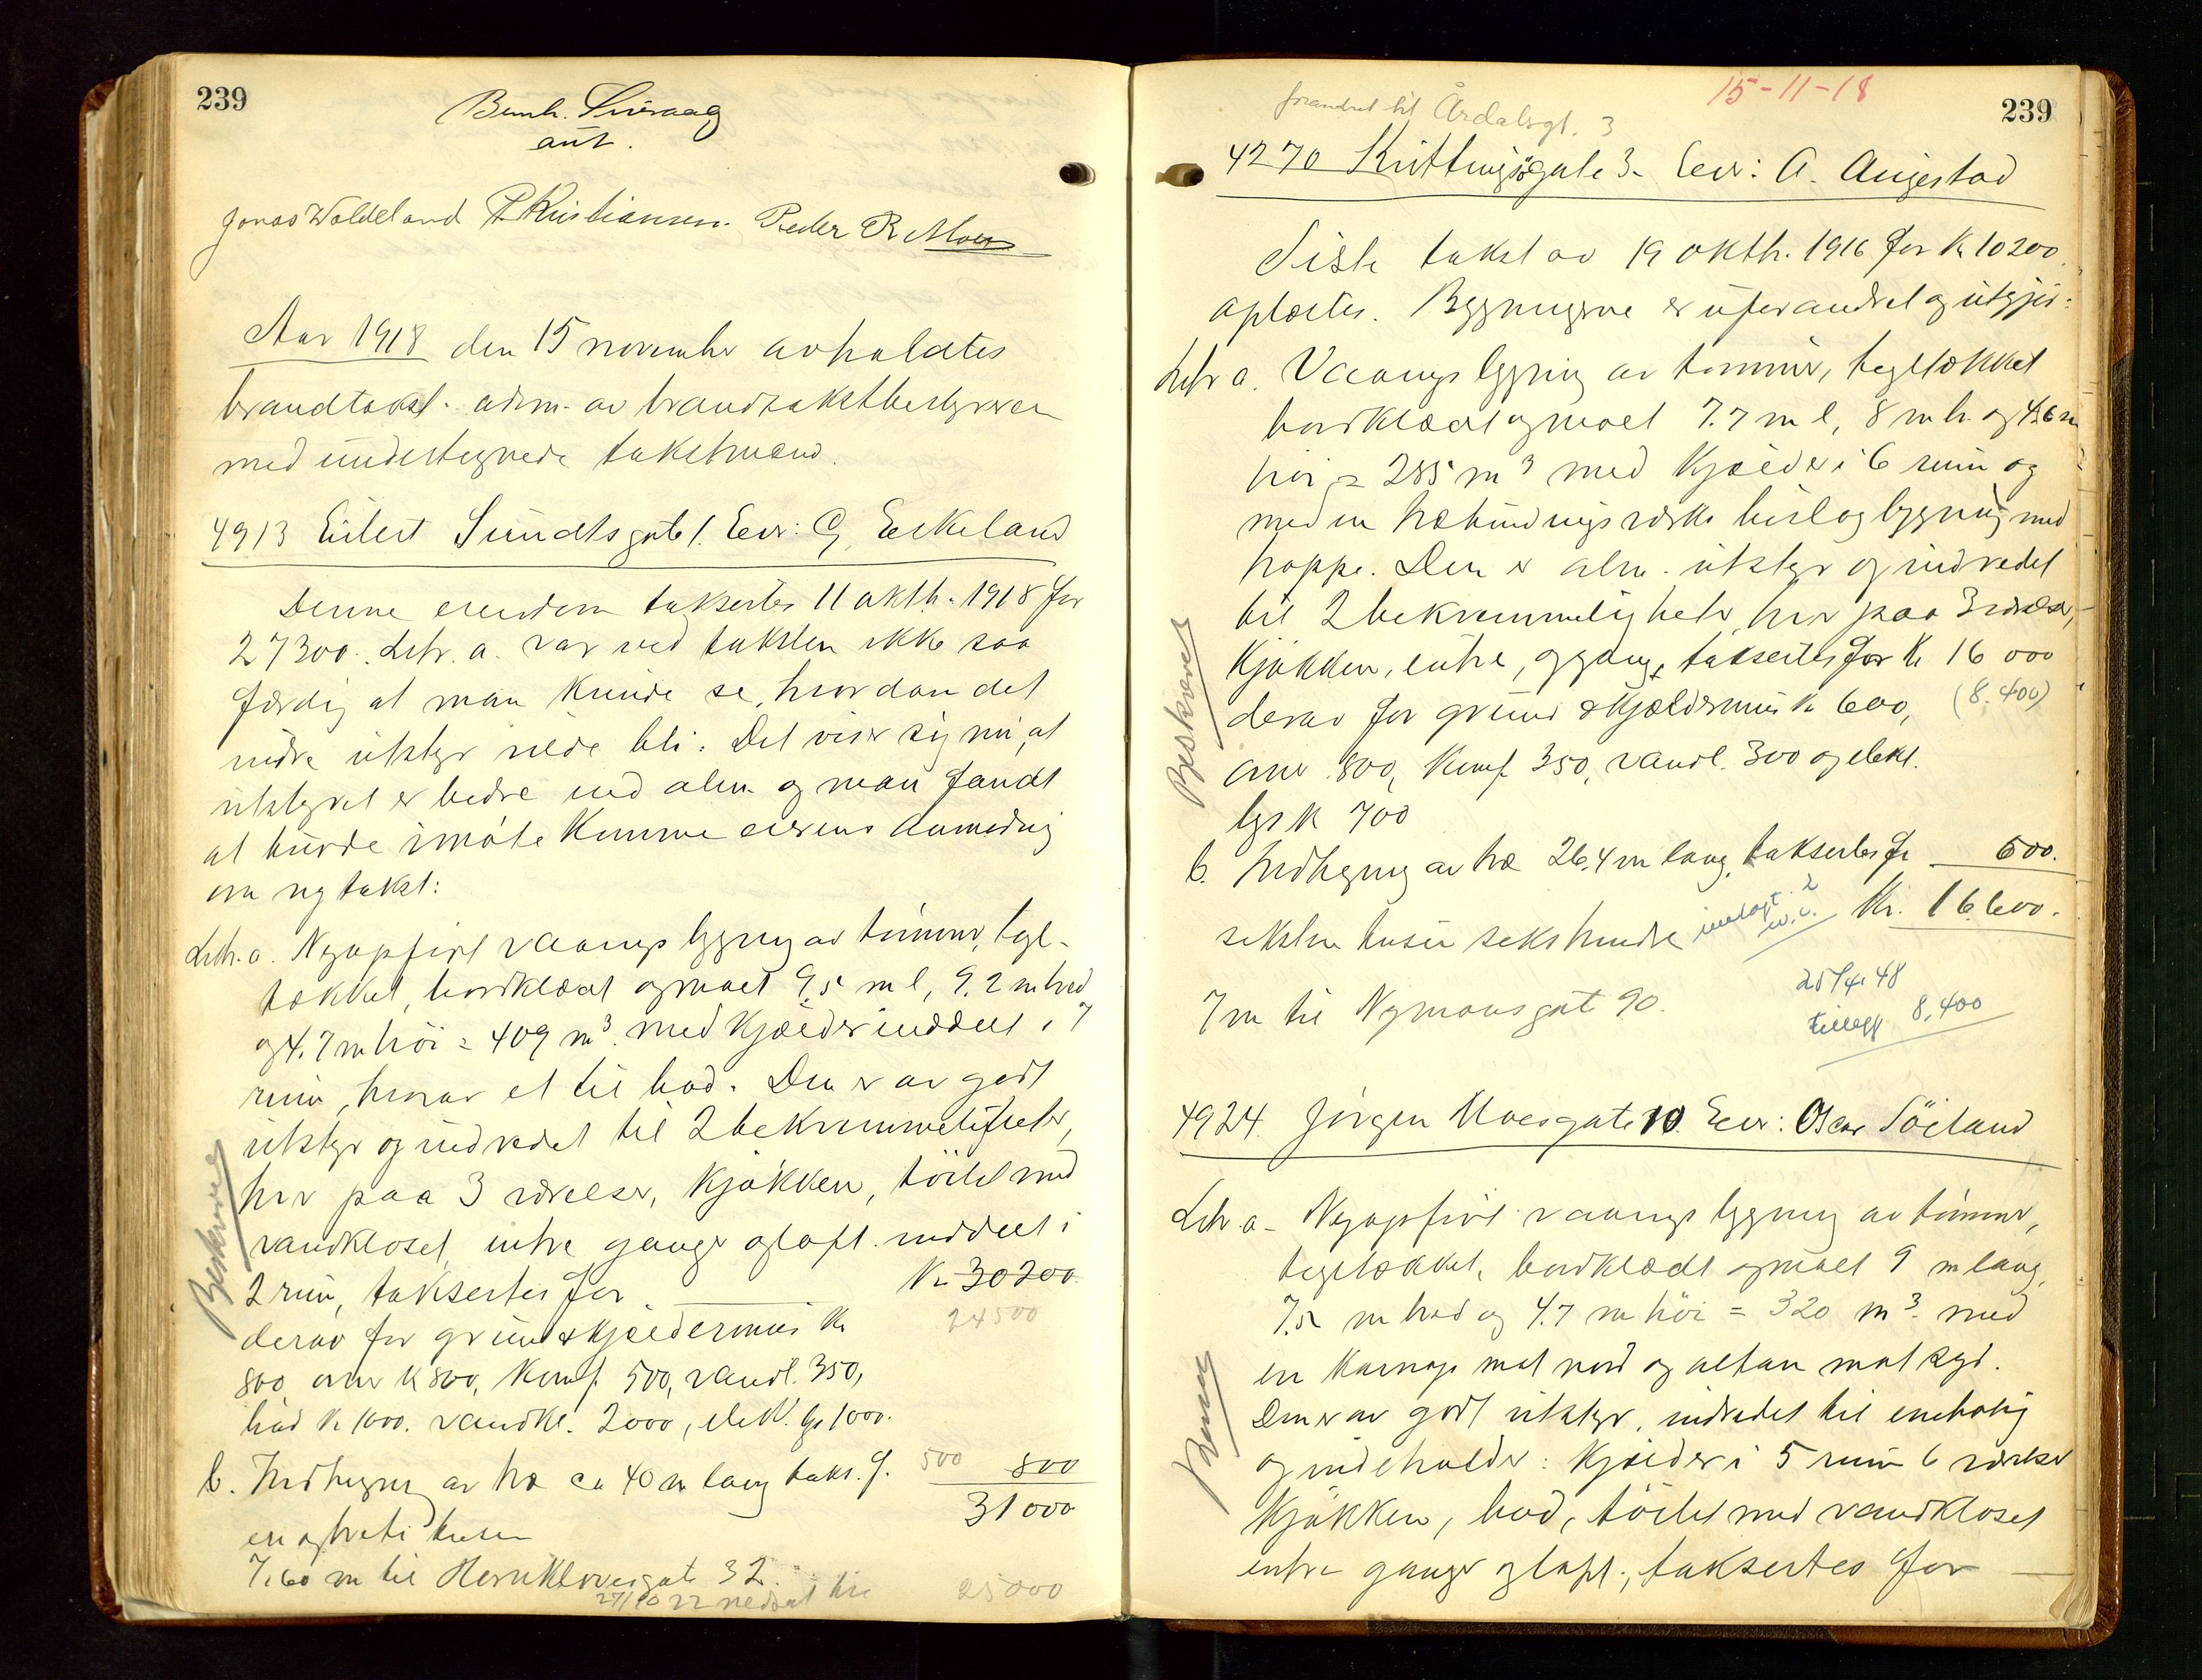 239
Bernh.
aut.
Jonas Woldeland P Kristiansen. Peder R Moen
Aar 1918 den 15 november avholdtes
brandtakst. adm. av brandtakstbestyreren
med undertegnede takstmænd.
4913 Eilert Sundtsgate 1. Eier: G. Eikeland
Denne eiendom taksertes 11 oktb. 1918 for
27300. Litr. a. var ved taksten ikke saa
færdig at man kunde se, hvordan det
indre utstyr vilde bli. Det viser sig nu, at
utstyret er bedre end alm. og man fandt
at burde imøtekomme eierens anmodning
om ny takst:
Litr. a. Nyopført vaaningsbygning av tømmer, tegl-
tækket, bordklædt og maalt 9,5 m l, 9.2 m bred
og 4.7 m høi = 409 m³. med kjælder inddelt i 7
rum, hvorav et til bad. Den er av godt
utstyr og indredet til 2 bekvemmeligheter,
hver paa 3 værelser, kjøkken, toilet med
vandkloset, entre ganger og loft inddelt i
2 rum, taksertes for Kr 30200
24500
derav for grund & kjældermur Kr
800, ovner k 800, komf. 500, vandl. 350,
bad Kr 1000. vandkl. 2000, elek. lys 1000.
b. Indhegning av træ ca 40 m lang takst. f. 500 800
31000
en og tretti tusen
7,60 m til Hornklovesgate 32.
27/10 22 nedsat til 25000
Beskrevet
15-11-18
239
forandret til Årdalsgt. 3
4270 Kvittingsøgate 3. Eier: A. Aigestad
Siste takst av 19 oktb. 1916 for Kr 10200
oplæstes. Bygningerne er uforandret og utgjør:
Litr a. Vaaningsbygning av tømmer, tegltækket
bordklædt og maalt 7.7 m l, 8 m br. og 4.6 m
høi = 285 m³ med kjælder i 6 rum og
med en træbindingsverks bislagbygning med
trappe. Den er alm. utstyr og indredet
til 2 bekvemmeligheter, hver paa 3 værelser,
kjøkken, entre, og gang, taksertes for Kr 16 000
derav for grund & kjældermur Kr 600, (8.400)
ovner 800, komf. 350, vandl. 300 og elekt.
lys K 700
b. Indhegning av træ 26.4 m lang, taksertes for 600.
Kr. 16.600.
seksten tusen sekshundre innlagt 2 w.c.
25/4 48
tillegg 8,400
7 m til Nymansgate 90.
Beskrevet
4924. Jørgen Moesgate 10. Eier: Oscar Söiland
Litr a. Nyopført vaaningsbygning av tømmer,
tegltækket, bordklædt og maalt 9 m lang,
7.5 m bred og 4.7 m høi = 320 m³. med
en karnap mot nord og altan mot syd.
Den er av godt utstyr, indredet til enebolig
og indeholder: kjælder i 5 rum 6 værelser
kjøkken, bad, toilet med vandkloset
entre ganger og loft, taksertes for